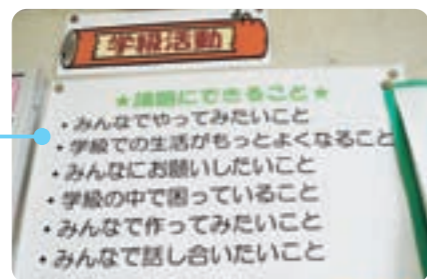 学級活動
★議題にできること★
・みんなでやってみたいこと
・学級での生活がもっとよくなること
・みんなにお願いしたいこと
・学級の中で困っていること
・みんなで作ってみたいこと
・みんなで話し合いたいこと